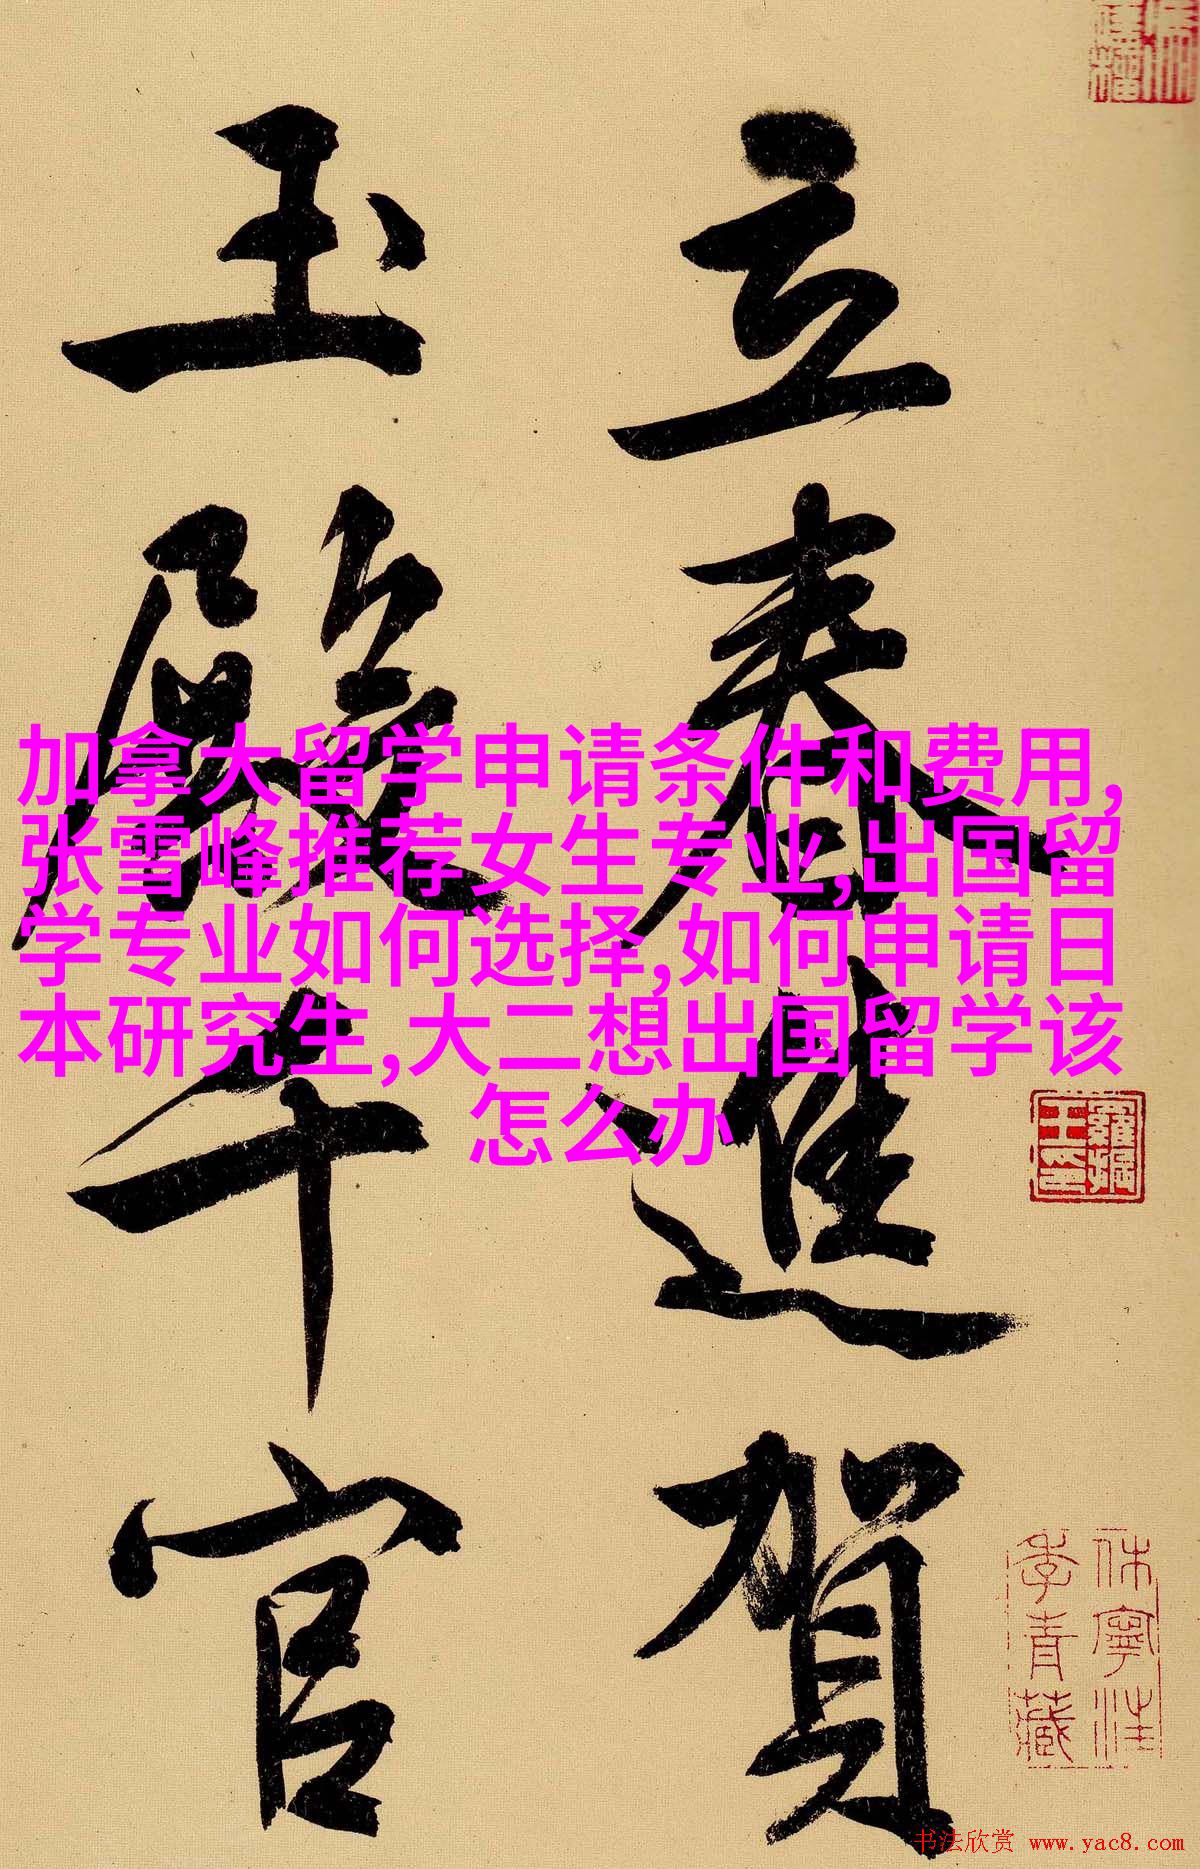 立春進賀
玉殿千官
加拿大留学申请条件和费用,
张雪峰推荐女生专业,出国留
学专业如何选择,如何申请日
本研究生,大二想出国留学该
怎么办
休寧汪
季青藏
书法欣赏 www.yac8.com